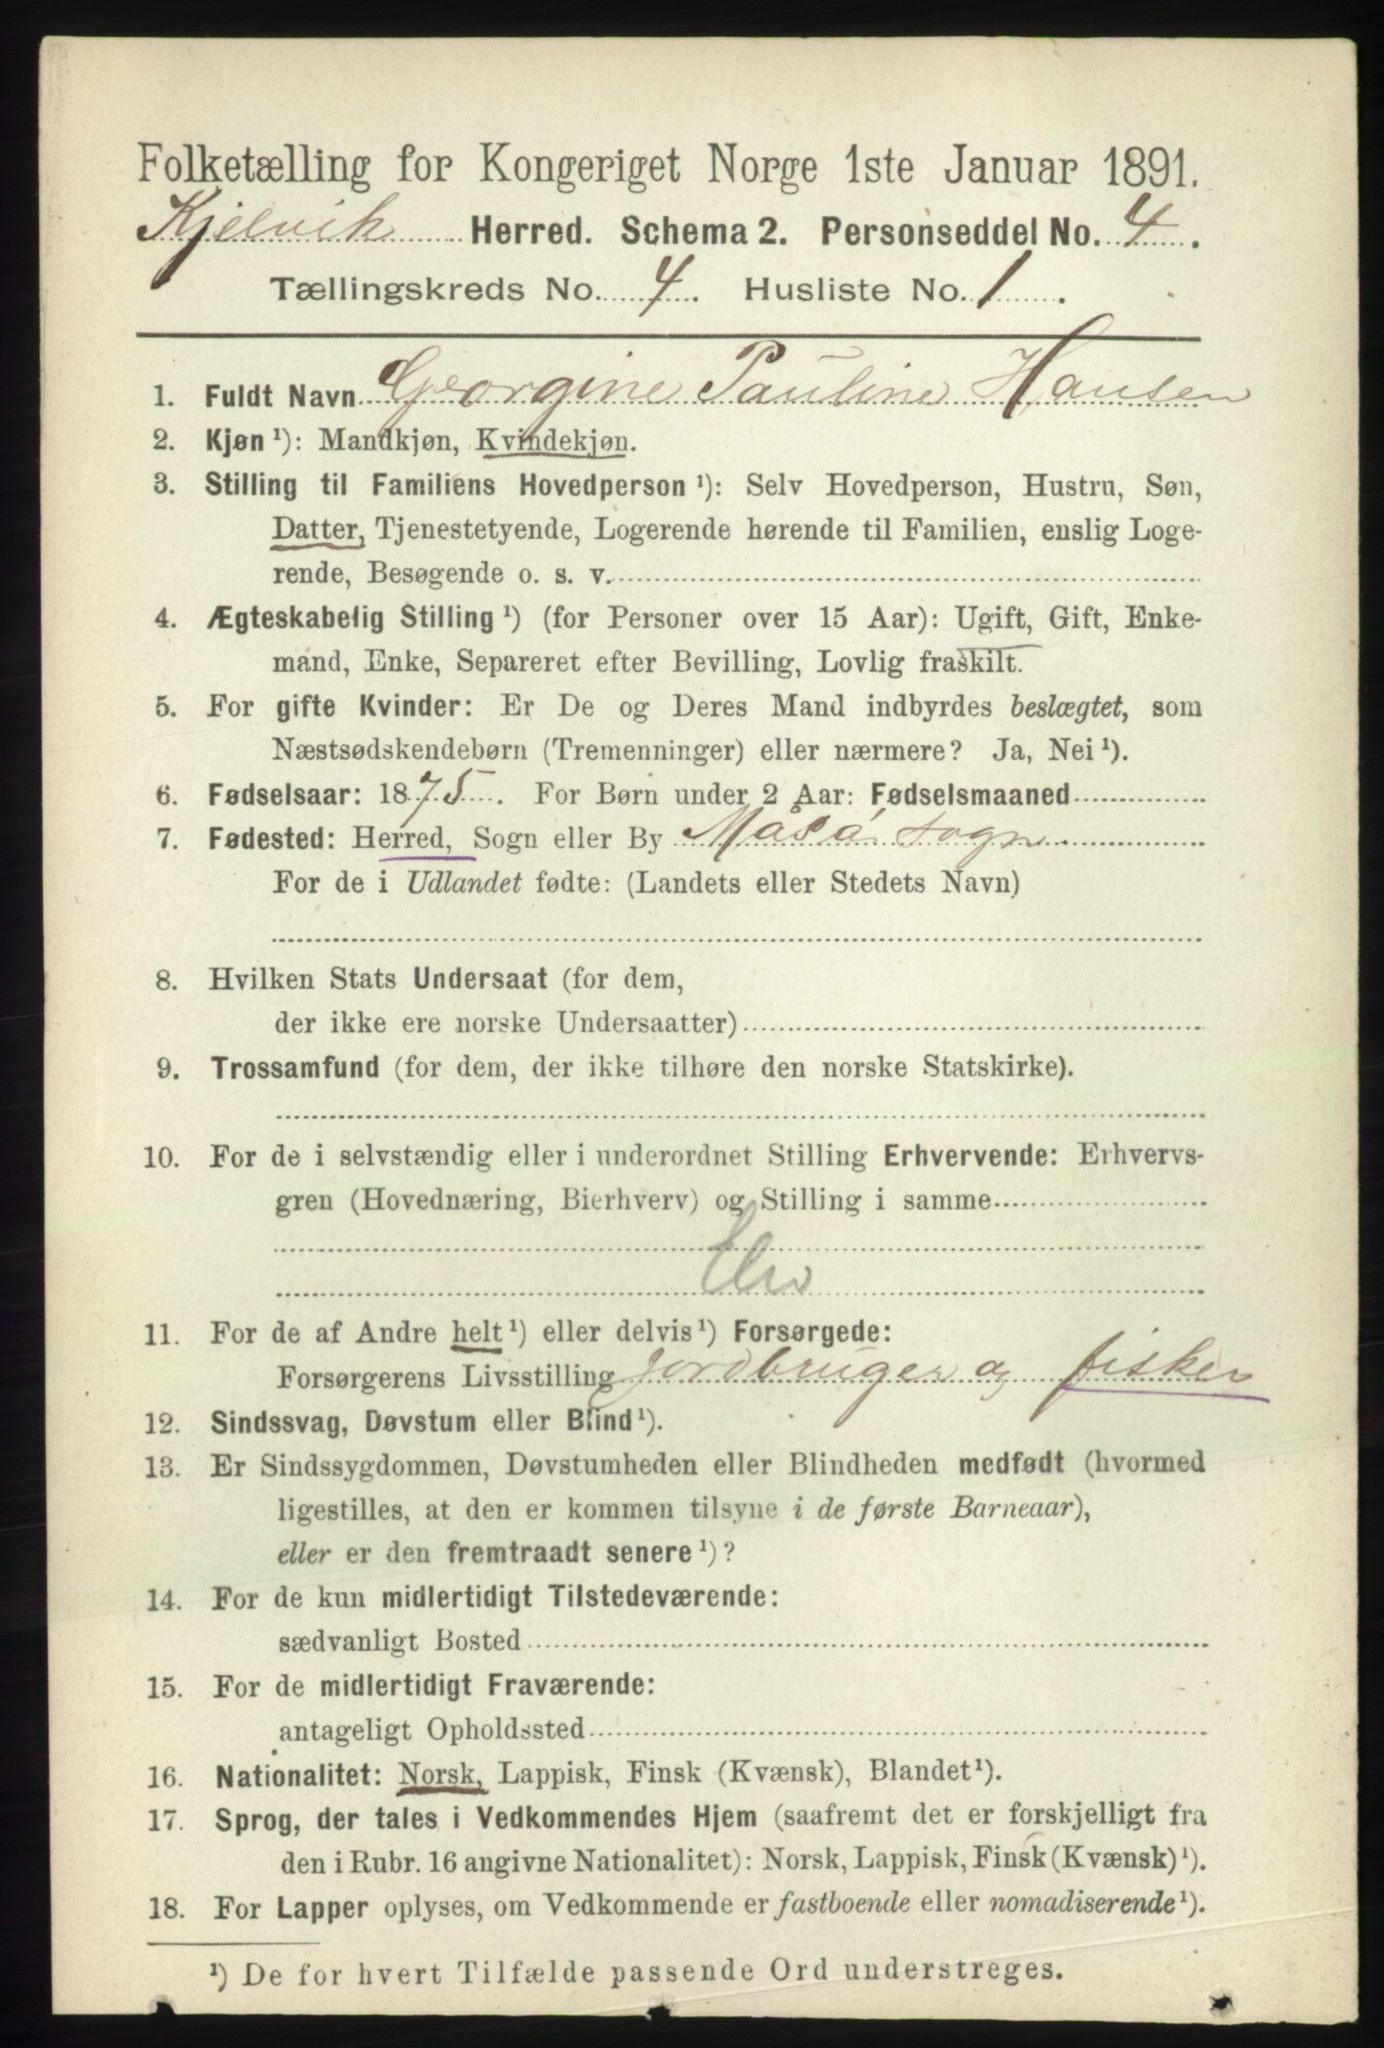 Folketælling for Kongeriget Norge 1ste Januar 1891.
Kjelvik Herred. Schema 2. Personseddel No. 4.
Tællingskreds No. 4. Husliste No. 1.
1. Fuldt Navn Georgine Pauline Hansen
2. Kjøn ¹): Mandkjøn, Kvindekjøn.
3. Stilling til Familiens Hovedperson ¹): Selv Hovedperson, Hustru, Søn,
Datter, Tjenestetyende, Logerende hørende til Familien, enslig Loge-
rende, Besøgende o. s. v.
4. Ægteskabelig Stilling ¹) (for Personer over 15 Aar): Ugift, Gift, Enke-
mand, Enke, Separeret efter Bevilling, Lovlig fraskilt.
5. For gifte Kvinder: Er De og Deres Mand indbyrdes beslægtet, som
Næstsødskendebørn (Tremenninger) eller nærmere? Ja, Nei ¹).
6. Fødselsaar: 1875. For Børn under 2 Aar: Fødselsmaaned
7. Fødested: Herred, Sogn eller By Måsø sogn
For de i Udlandet fødte: (Landets eller Stedets Navn)
8. Hvilken Stats Undersaat (for dem,
der ikke ere norske Undersaatter)
9. Trossamfund (for dem, der ikke tilhøre den norske Statskirke).
10. For de i selvstændig eller i underordnet Stilling Erhvervende: Erhvervs-
gren (Hovednæring, Bierhverv) og Stilling i samme
11. For de af Andre helt ¹) eller delvis ¹) Forsørgede:
Forsørgerens Livsstilling jordbruger og fisker
12. Sindssvag, Døvstum eller Blind ¹).
13. Er Sindssygdommen, Døvstumheden eller Blindheden medfødt (hvormed
ligestilles, at den er kommen tilsyne i de første Barneaar),
eller er den fremtraadt senere ¹)?
14. For de kun midlertidigt Tilstedeværende:
sædvanligt Bosted
15. For de midlertidigt Fraværende:
antageligt Opholdssted
16. Nationalitet: Norsk, Lappisk, Finsk (Kvænsk), Blandet ¹).
17. Sprog, der tales i Vedkommendes Hjem (saafremt det er forskjelligt fra
den i Rubr. 16 angivne Nationalitet): Norsk, Lappisk, Finsk (Kvænsk) ¹).
18. For Lapper oplyses, om Vedkommende er fastboende eller nomadiserende ¹).
¹) De for hvert Tilfælde passende Ord understreges.